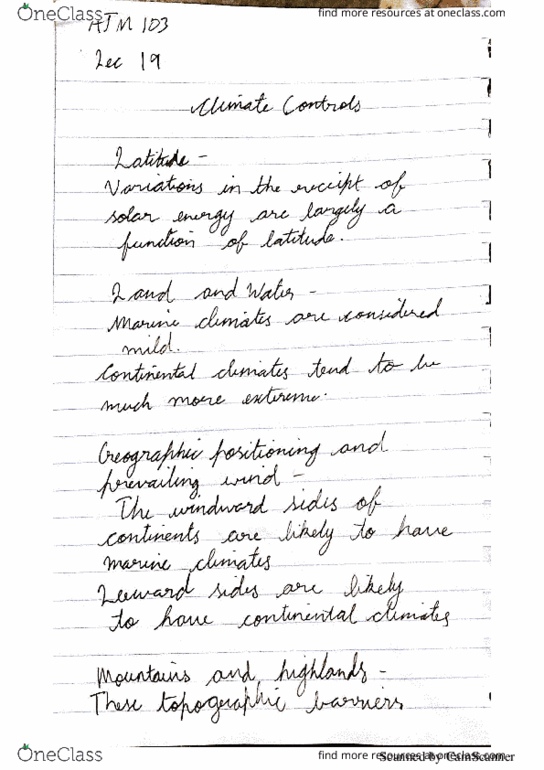 OneClass
find more resources at oneclass.com
ATM 103
Lec 19
Climate Controls
Latitude -
Variations in the receipt of
solar energy are largely a
function of latitude.
Land and Water -
Marine climates are considered
mild.
Continental climates tend to be
much more extreme.
Geographic positioning and
prevailing wind -
The windward sides of
continents are likely to have
marine climates
Leeward sides are likely
to have continental climates
Mountains and highlands -
These topographic barriers
OneClass
find more resources at oneclass.com
Scanned by CamScanner